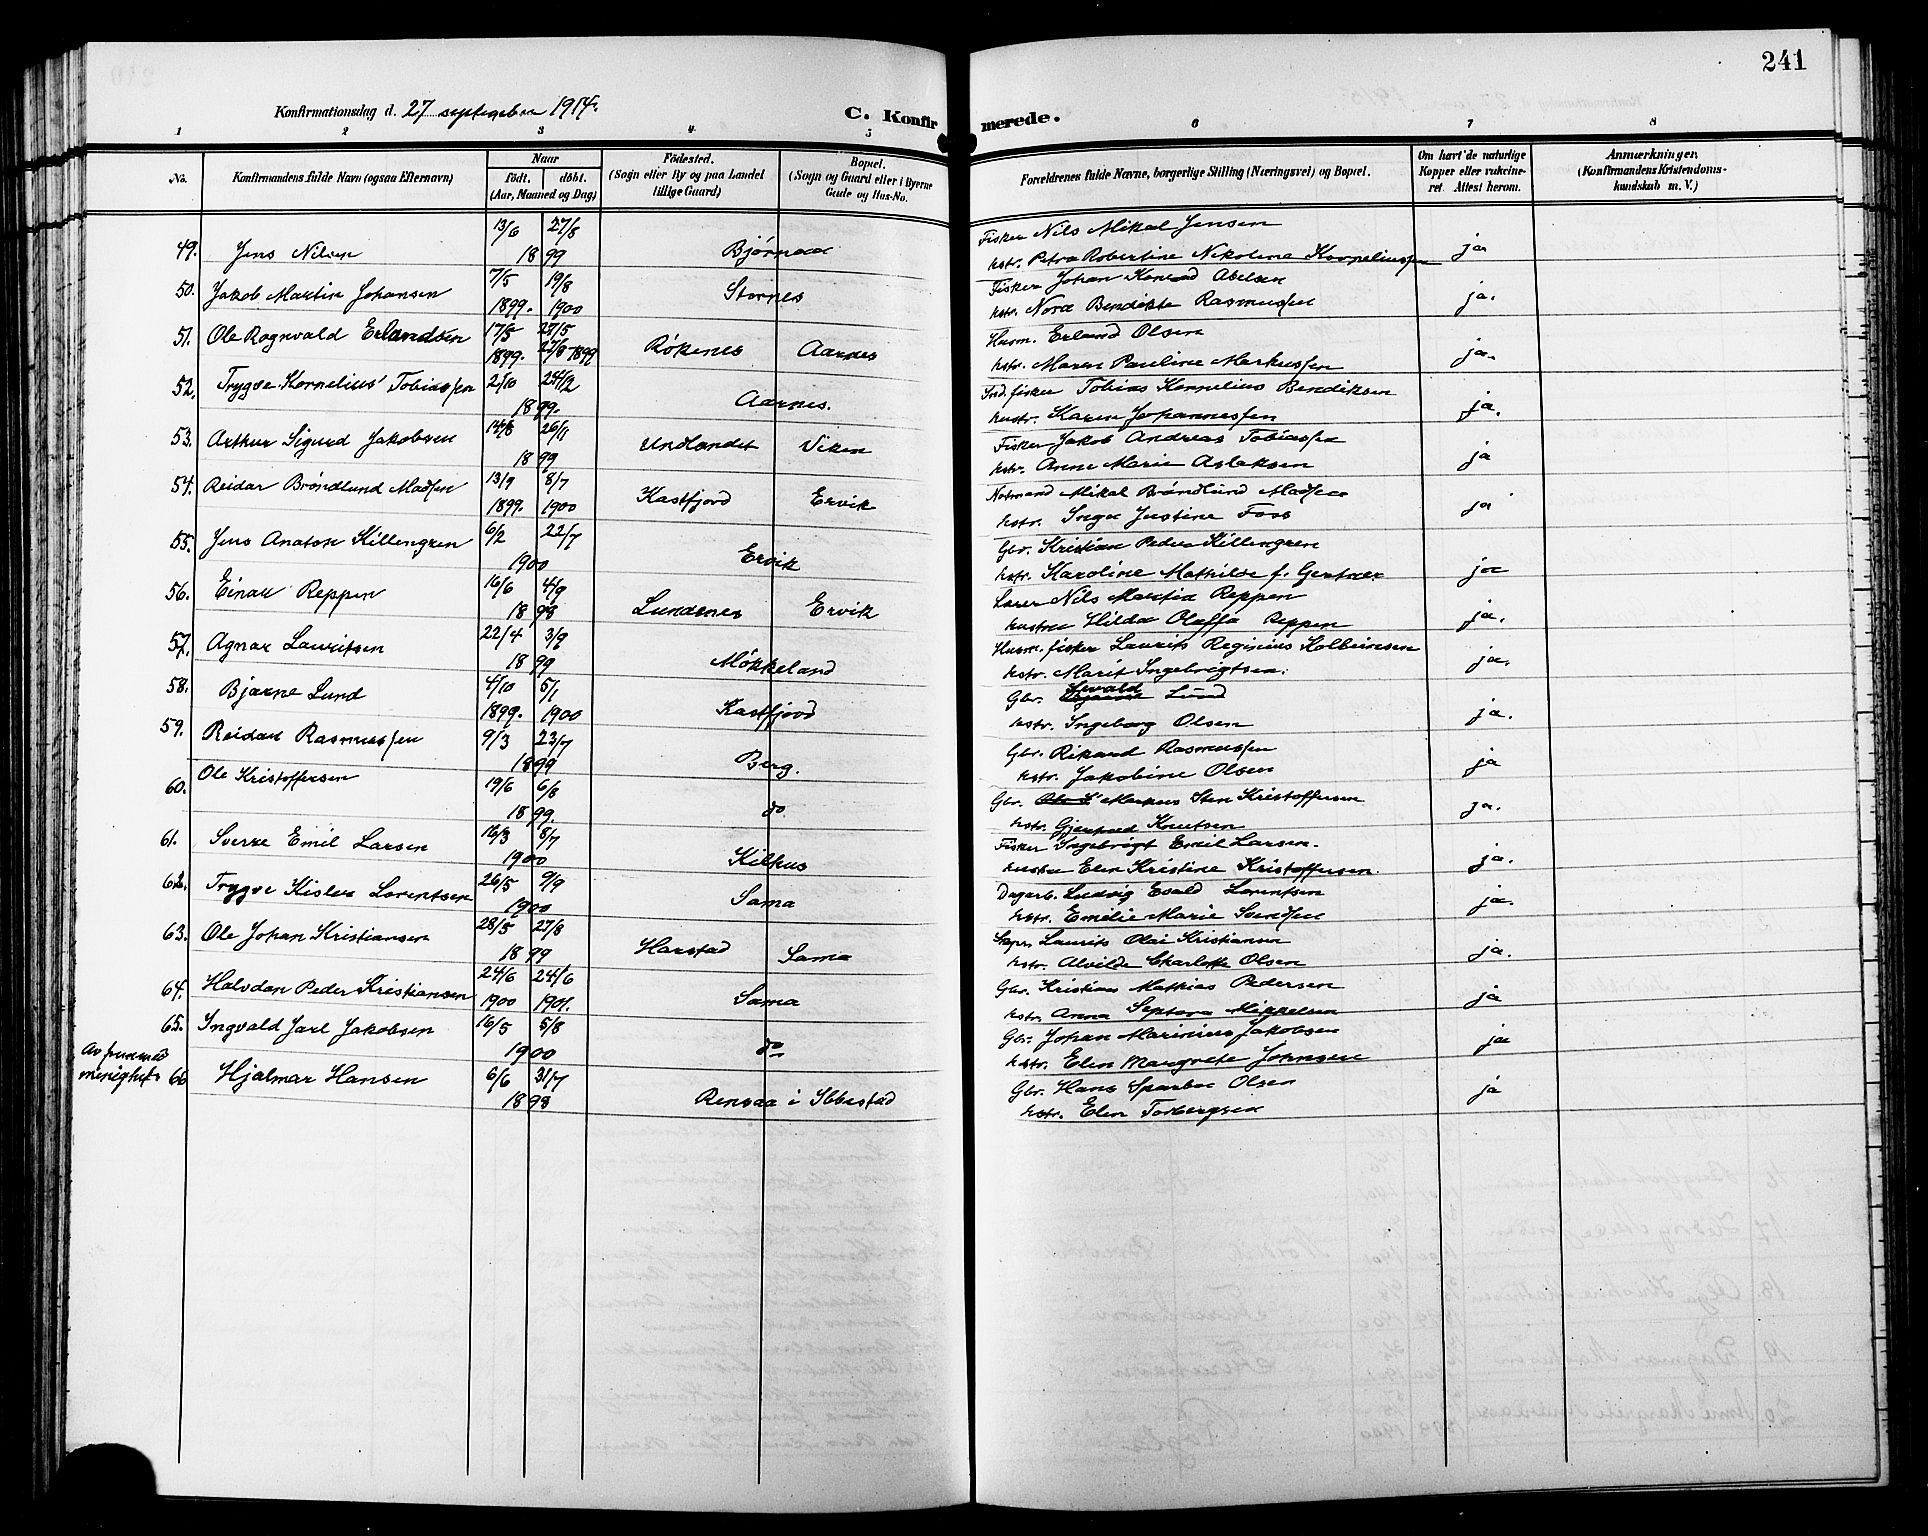 241
Konfirmationsdag d. 27 september 1914.
C. Konfirmerede.
1 2 3 4 5 6 7 8
No.
Konfirmandens fulde Navn (ogsaa Efternavn)
Naar
födt. döbt.
(Aar, Maaned og Dag)
Födested.
(Sogn eller By og paa Landet
tillige Gaard)
Bopæl.
(Sogn og Gaard eller i Byerne
Gade og Hus-No.
Forældrenes fulde Navne, borgerlige Stilling (Næringsvei) og Bopæl.
Om havt de naturlige
Kopper eller vaccineret.
Attest herom.
Anmærkninger.
(Konfirmandens Kristendomskundskab
m. V.)
49. Jens Nilsen 13/6 27/8 1899 Bjørnaa Fisker Nils Mikal Jensen ja
hstr. Petra Robertine Nikoline Korneliussen
50. Jakob Martin Johansen 7/5 1899. 19/8 1900 Stornes Fisker Johan Konrad Abelsen ja.
hstr. Nora Bendikte Rasmussen
51. Ole Ragnvald Erlandsen 17/5 1899. 27/8 1899 Røkenes Aarnes Husm. Erland Olsen ja.
hstr. Maren Pauline Markussen
52. Trygve Kornelius Tobiassen 2/10 24/12 1899. Aarnes. Ind. fisker Tobias Kornelius Bendiksen ja.
hustr. Karen Johannessen
53. Arthur Sigurd Jakobsen 14/8 26/11 1899 Undlandet Viken Fisker Jakob Andreas Tobiassen ja
hstr. Anne Marie Aslaksen
54. Reidar Brøndlund Madsen 13/9 1899. 8/7 1900 Kastfjord Ervik Notmand Mikal Brøndlund Madsen ja
hstr. Inga Justine Foss
55. Jens Anaton Killengren 6/2 22/7 1900 Ervik Gbr. Kristian Peder Killengren ja
hstr. Karoline Mathilde f. Gentner
56. Einar Reppen 16/6 4/9 1899 Lundenes Ervik Lærer Nils Martin Reppen ja.
hustru Hilda Olaffa Reppen
57. Agnar Lauritsen 22/4 3/9 1899 Møkkeland Husm. fisker Laurits Reginius Kolbeinsen ja.
hstr. Marit Ingebrigtsen.
58. Bjarne Lund 4/10 1899. 5/1 1900 Kastfjord Gbr. Sevald Lund ja.
hstr. Ingeborg Olsen
59. Reidar Rasmussen 9/3 23/7 1899 Berg. Gbr. Rikard Rasmussen ja
hstr. Jakobine Olsen
60. Ole Kristoffersen 19/6 6/8 1899. do. Gbr. Markus Sten Kristoffersen ja.
hstr. Gjertrud Knutsen
61. Sverre Emil Larsen 16/3 8/7 1900 Kilhus Fisker Ingebrigt Emil Larsen. ja.
hustru Elen Kristine Kristoffersen.
62. Trygve Kisler Lorentsen 26/5 9/9 1900 Sama Dagarb. Ludvig Evald Lorentsen ja.
hstr. Emelie Marie Svendsen
63. Ole Johan Kristiansen 28/5 27/8 1899 Harstad Sama Laurits Olai Kristiansen ja.
hstr. Alvilde Charlotte Olsen
64. Halvdan Peder Kristiansen 24/6 1900 24/6 1901. Sama Gbr. Kristian Mathias Pedersen ja
hstr. Anna Septora Mikkelsen
65. Ingvald Jarl Jakobsen 16/5 5/8 1900 do Gbr. Johan Marinius Jakobsen ja
hstr. Elen Margrete Johnsen
Av fremmed
menighet: 66 Hjalmar Hansen 6/6 31/7 1898 Rensaa i Ibbestad Gbr. Hans Sparboe Olsen ja
hstr. Elen Torbergsen